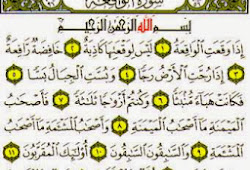 سُورَةُ الْوَاقِعَةِ
بِسْمِ اللَّهِ الرَّحْمَٰنِ الرَّحِيمِ
إِذَا وَقَعَتِ الْوَاقِعَةُ ١ لَيْسَ لِوَقْعَتِهَا كَاذِبَةٌ ٢ خَافِضَةٌ رَّافِعَةٌ
٣ إِذَا رُجَّتِ الْأَرْضُ رَجًّا ٤ وَبُسَّتِ الْجِبَالُ بَسًّا ٥
فَكَانَتْ هَبَاءً مُّنۢبَثًّا ٦ وَكُنتُمْ أَزْوَٰجًا ثَلَٰثَةً ٧ فَأَصْحَٰبُ
الْمَيْمَنَةِ مَا أَصْحَٰبُ الْمَيْمَنَةِ ٨ وَأَصْحَٰبُ الْمَشْـَٔمَةِ مَا أَصْحَٰبُ
الْمَشْـَٔمَةِ ٩ وَالسَّٰبِقُونَ السَّٰبِقُونَ ١٠ أُو۟لَٰٓئِكَ الْمُقَرَّبُونَ ١١